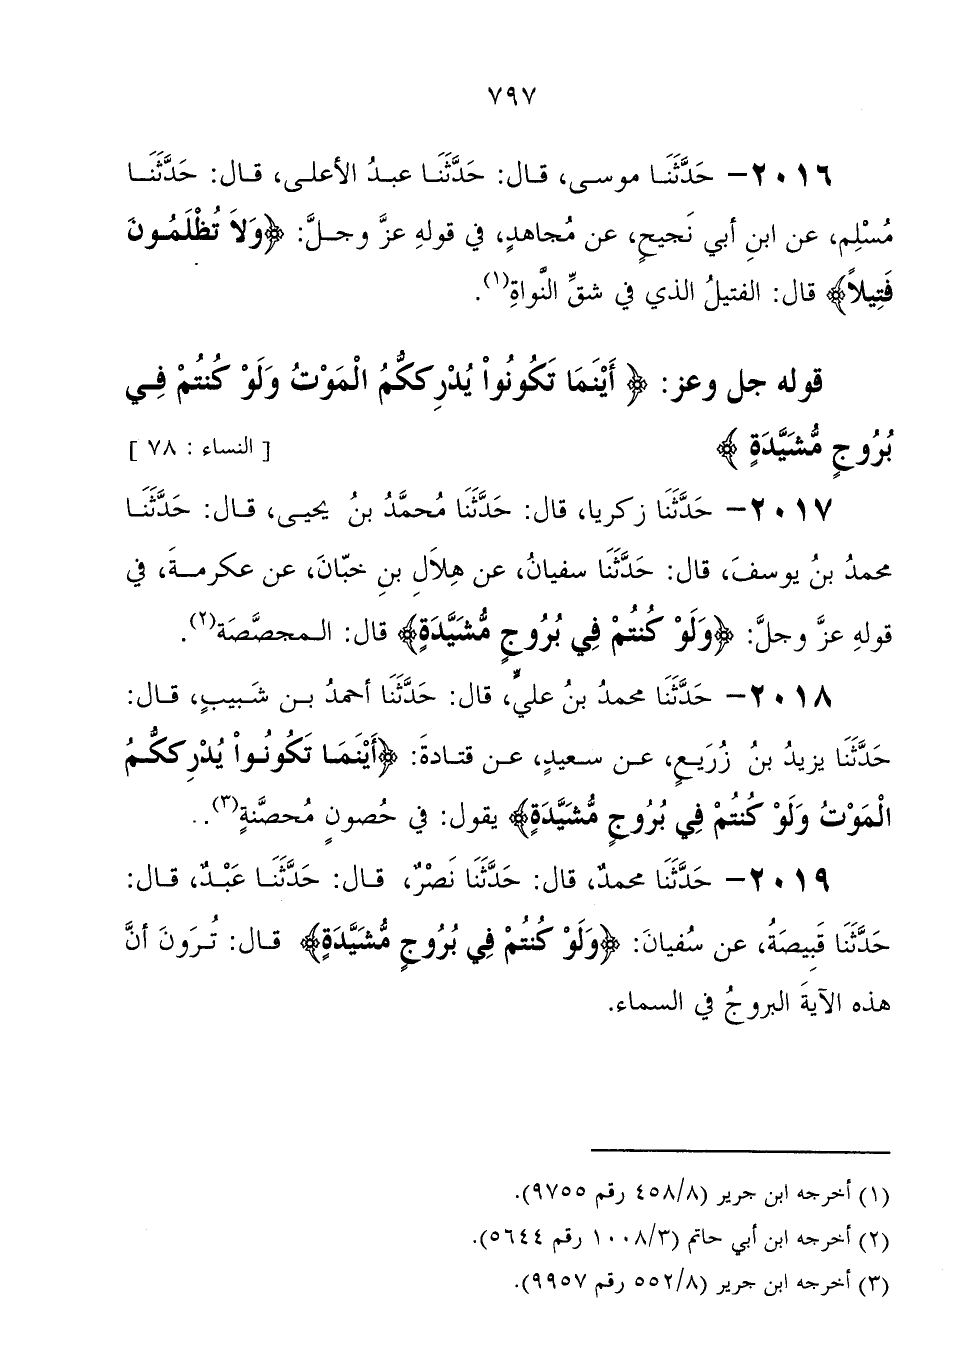 ٧٩٧
٢٠١٦- حَدَّثَنَا موسى، قال: حَدَّثَنَا عبدُ الأعلى، قال: حَدَّثَنَا
مُسْلِم، عن ابنِ أبي نَجيحٍ، عن مُجاهدٍ، في قولهِ عزَّ وجلَّ: ﴿وَلاَ تُظْلَمُونَ
فَتِيلاً﴾ قال: الفتيلُ الذي في شقِّ النَّواةِ(١).
قوله جل وعز: ﴿ أَيْنَمَا تَكُونُواْ يُدْرِككُّمُ الْمَوْتُ وَلَوْ كُنتُمْ فِي
بُرُوجٍ مُّشَيَّدَةٍ ﴾ [ النساء : ٧٨ ]
٢٠١٧- حَدَّثَنَا زكريا، قال: حَدَّثَنَا مُحمَّدُ بنُ يحيى، قال: حَدَّثَنَا
محمدُ بنُ يوسفَ، قال: حَدَّثَنَا سفيانُ، عن هِلاَلِ بنِ خبّانَ، عن عكرمةَ، في
قولهِ عزَّ وجلَّ: ﴿وَلَوْ كُنتُمْ فِي بُرُوجٍ مُّشَيَّدَةٍ﴾ قال: المجصَّصَة(٢).
٢٠١٨- حَدَّثَنَا محمدُ بنُ عليٍّ، قال: حَدَّثَنَا أحمدُ بن شَبيبٍ، قال:
حَدَّثَنَا يزيدُ بنُ زُرَيعٍ، عن سعيدٍ، عن قتادةَ: ﴿أَيْنَمَا تَكُونُواْ يُدْرِككُّمُ
الْمَوْتُ وَلَوْ كُنتُمْ فِي بُرُوجٍ مُّشَيَّدَةٍ﴾ يقول: في حُصونٍ مُحصَّنةٍ(٣)..
٢٠١٩- حَدَّثَنَا محمدٌ، قال: حَدَّثَنَا نَصْرٌ، قال: حَدَّثَنَا عَبْدٌ، قال:
حَدَّثَنَا قَبِيصَةُ، عن سُفيانَ: ﴿وَلَوْ كُنتُمْ فِي بُرُوجٍ مُّشَيَّدَةٍ﴾ قال: تُرَونَ أنَّ
هذه الآيةَ البروجُ في السماء.
(١) أخرجه ابن جرير (٤٥٨/٨ رقم ٩٧٥٥).
(٢) أخرجه ابن أبي حاتم (١٠٠٨/٣ رقم ٥٦٤٤).
(٣) أخرجه ابن جرير (٥٥٢/٨ رقم ٩٩٥٧).